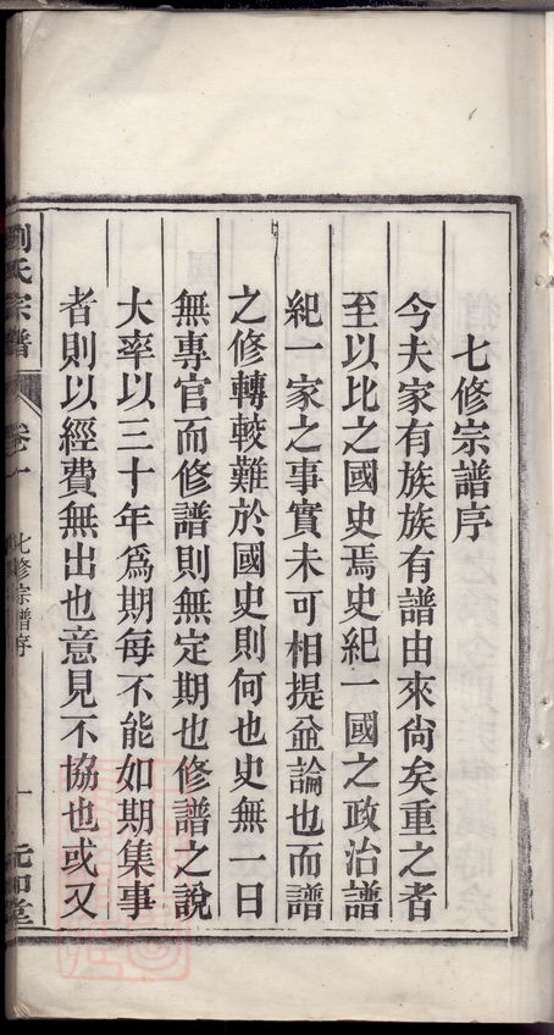 七修宗譜序
今夫家有族族有譜由來尙矣重之者
至以比之國史焉史紀一國之政治譜
紀一家之事實未可相提並論也而譜
之修轉較難於國史則何也史無一日
無專官而修譜則無定期也修譜之說
大率以三十年爲期每不能如期集事
者則以經費無出也意見不協也或又
劉氏宗譜
卷一
七修宗譜序
一
元和堂